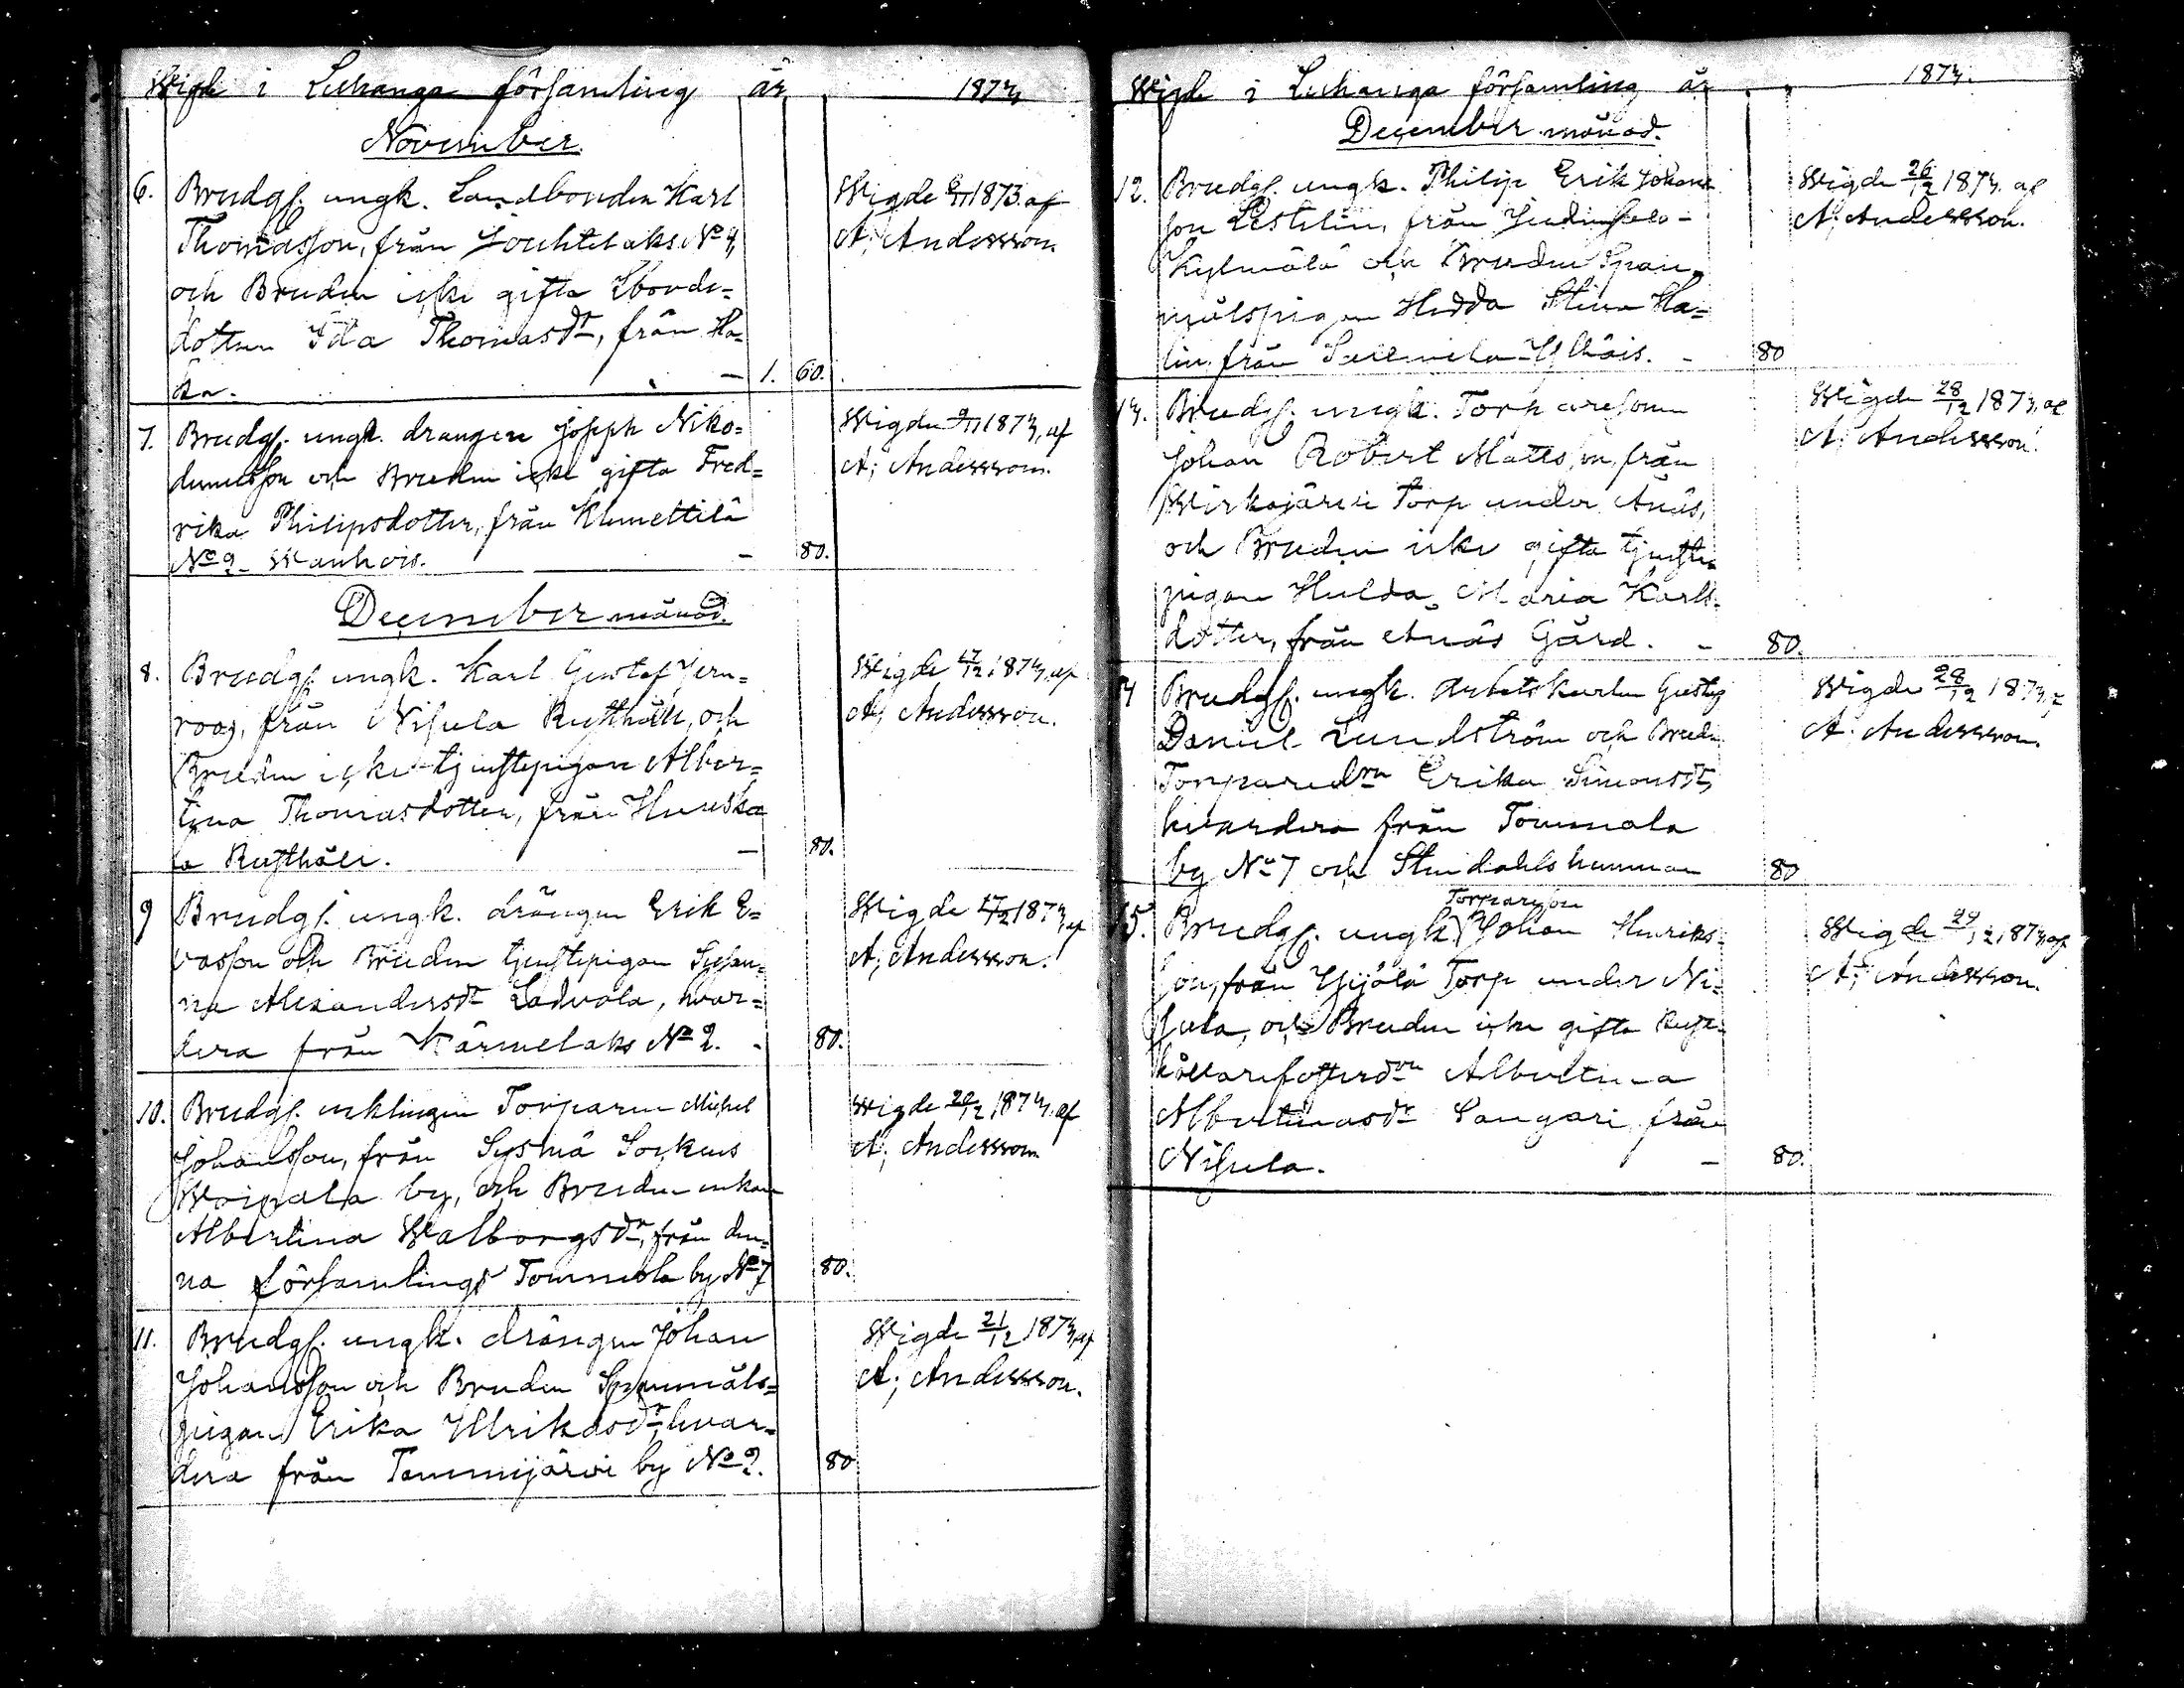 Wigde i Luhanga församling år 1873
November.
6. Brudgs. ungk. Landbonden Karl
Thomasson, från Jouhtelaks No 4,
och Bruden icke gifta Lbonde=
dottren Ida Thomasdr, från Ha=
ka. — 1. 60.
Wigde 9/11 1873. af
A; Andersson.
7. Brudgs. ungk. drängen Joseph Niko=
demusson och Bruden icke gifta Fred=
rika Philipsdotter, från Klemettilä
No 2 Wanhois. — 80.
Wigde 9/11 1873, af
A; Andersson.
December månad.
8. Brudgs. ungk. Karl Gustaf Jern=
roos, från Nisula Rusthåll, och
Bruden icke tjenstepigan Alber=
tina Thomasdotter, från Huuska
la Rusthåll. — 80.
Wigde 17/12 1873, af
A; Andersson.
9 Brudgs. ungk. drängen Erik E=
vasson och Bruden tjenstepigan Susan=
na Alexandersdr Ladvala, hvar=
dera från Kärmelaks No 2. - 80.
Wigde 17/12 1873, af
A; Andersson.
10. Brudgs. enklingen Torparen Michel
Johansson, från Sysmä Sockens
Woipala by, och Bruden enkan
Albertina Walborgsdr, från den=
na församlings Tommola by No 7 80.
Wigde 20/12 1873, af
A; Andersson.
11. Brudgs. ungk. drängen Johan
Johansson och Bruden Spanmåls=
pigan Erika Ulrikasdr, hvar=
dera från Tammijärvi by No 2. 80
Wigde 21/12 1873, af
A; Andersson.
Wigde i Luhanga församling år 1873.
December månad.
12. Brudgs. ungk. Philip Erik Johans
son Lestelin, från Judinsalo-
Kylmälä och Bruden Span=
målspigan Hedda Stina Ha=
lin från Salmela-Ylhäis. - 80
Wigde 26/12 1873. af
A; Andersson.
13. Brudgs. ungk. Torparesonen
Johan Robert Mattsson, från
Wirkajärvi Torp under Anäs,
och Bruden icke gifta tjenste
pigan Hulda Maria Karls=
dotter, från Anäs Gård. - 80.
Wigde 28/12 1873, af
A; Andersson.
14 Brudgs. ungk. Arbetskarlen Gustaf
Daniel Lundström och Bruden
Torparedrn Erika Simonsdr,
hvardera från Tommola
by No 7 och Stendahls hemman 80
Wigde 28/12 1873, af
A. Andersson.
15. Brudgs. ungk. Torparson Johan Henriks=
son, från Yijälä Torp under Ni=
sula, och Bruden icke gifta Rust=
hållarefosterdrn Albertina
Albertinasdr Sangari från
Nisula. — 80.
Wigde 29/12 1873, af
A; Andersson.